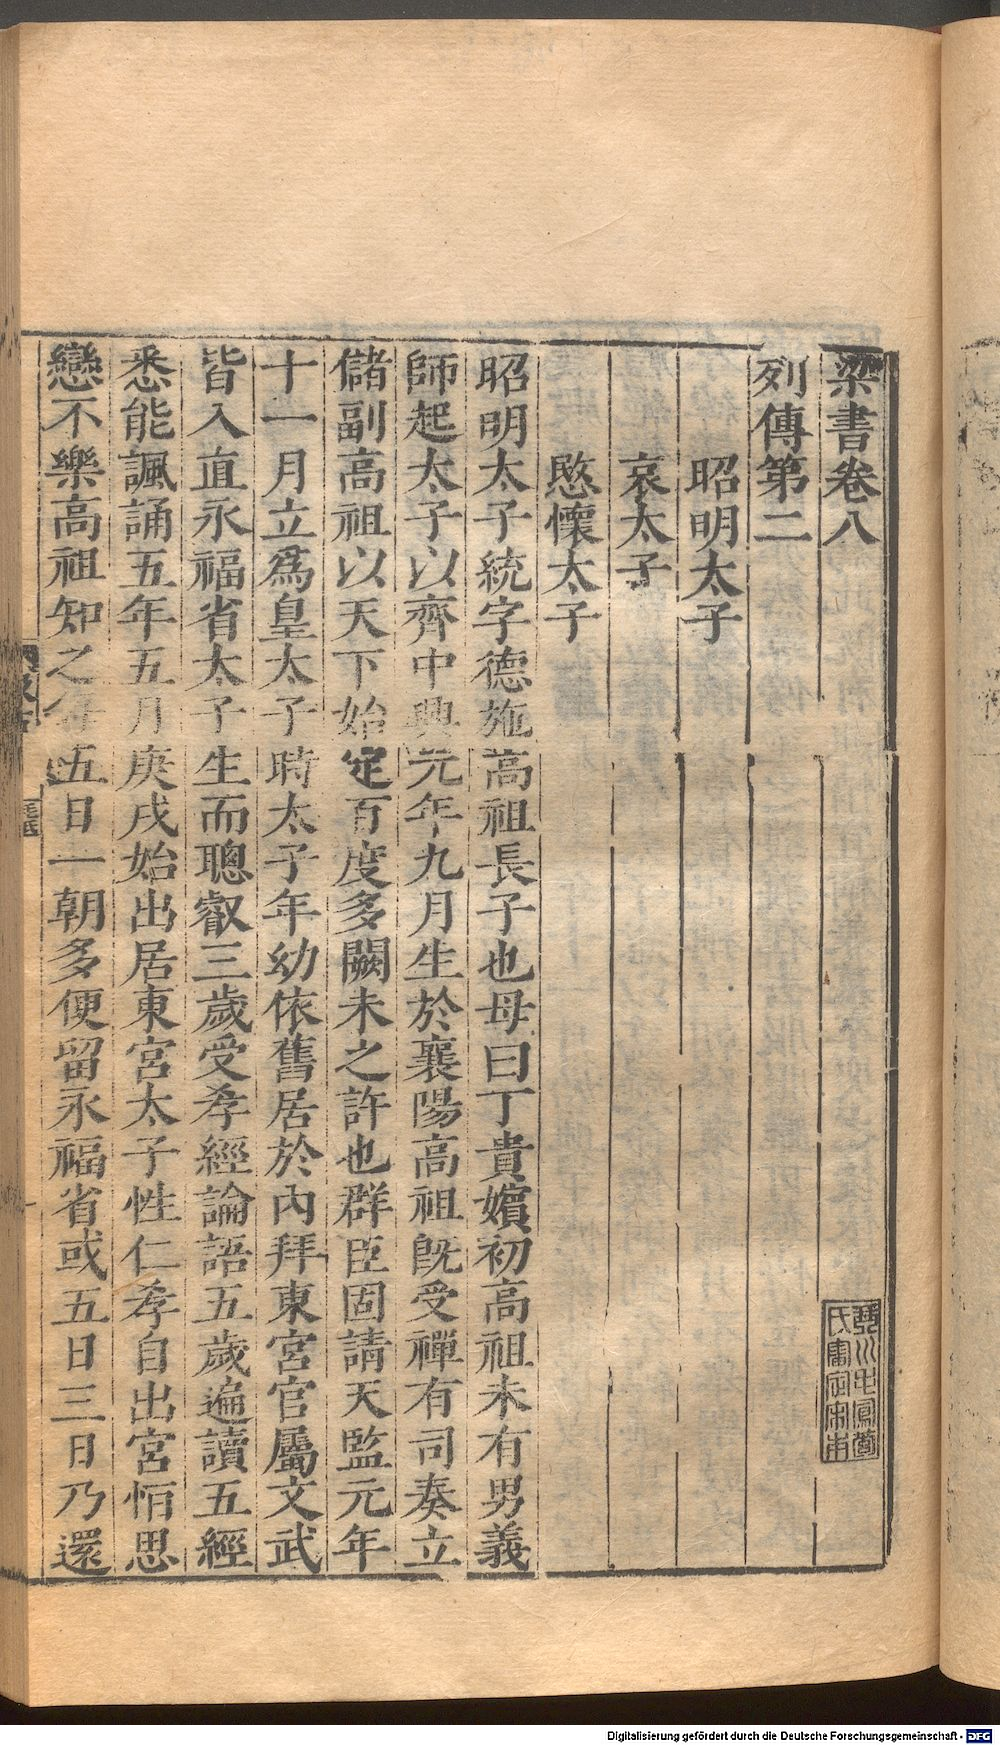 梁書卷八
列傳第二
昭明太子
哀太子
愍懷太子
昭明太子統字德施高祖長子也母曰丁貴嬪初高祖未有男義
師起太子以齊中興元年九月生於襄陽高祖旣受禪有司奏立
儲副高祖以天下始定百度多闕未之許也群臣固請天監元年
十一月立爲皇太子時太子年幼依舊居於內拜東宮官屬文武
皆入直永福省太子生而聰叡三歲受孝經論語五歲遍讀五經
悉能諷誦五年五月庚戌始出居東宮太子性仁孝自出宮恒思
戀不樂高祖知之每五日一朝多便留永福省或五日三日乃還
Digitalisierung gefördert durch die Deutsche Forschungsgemeinschaft - DFG